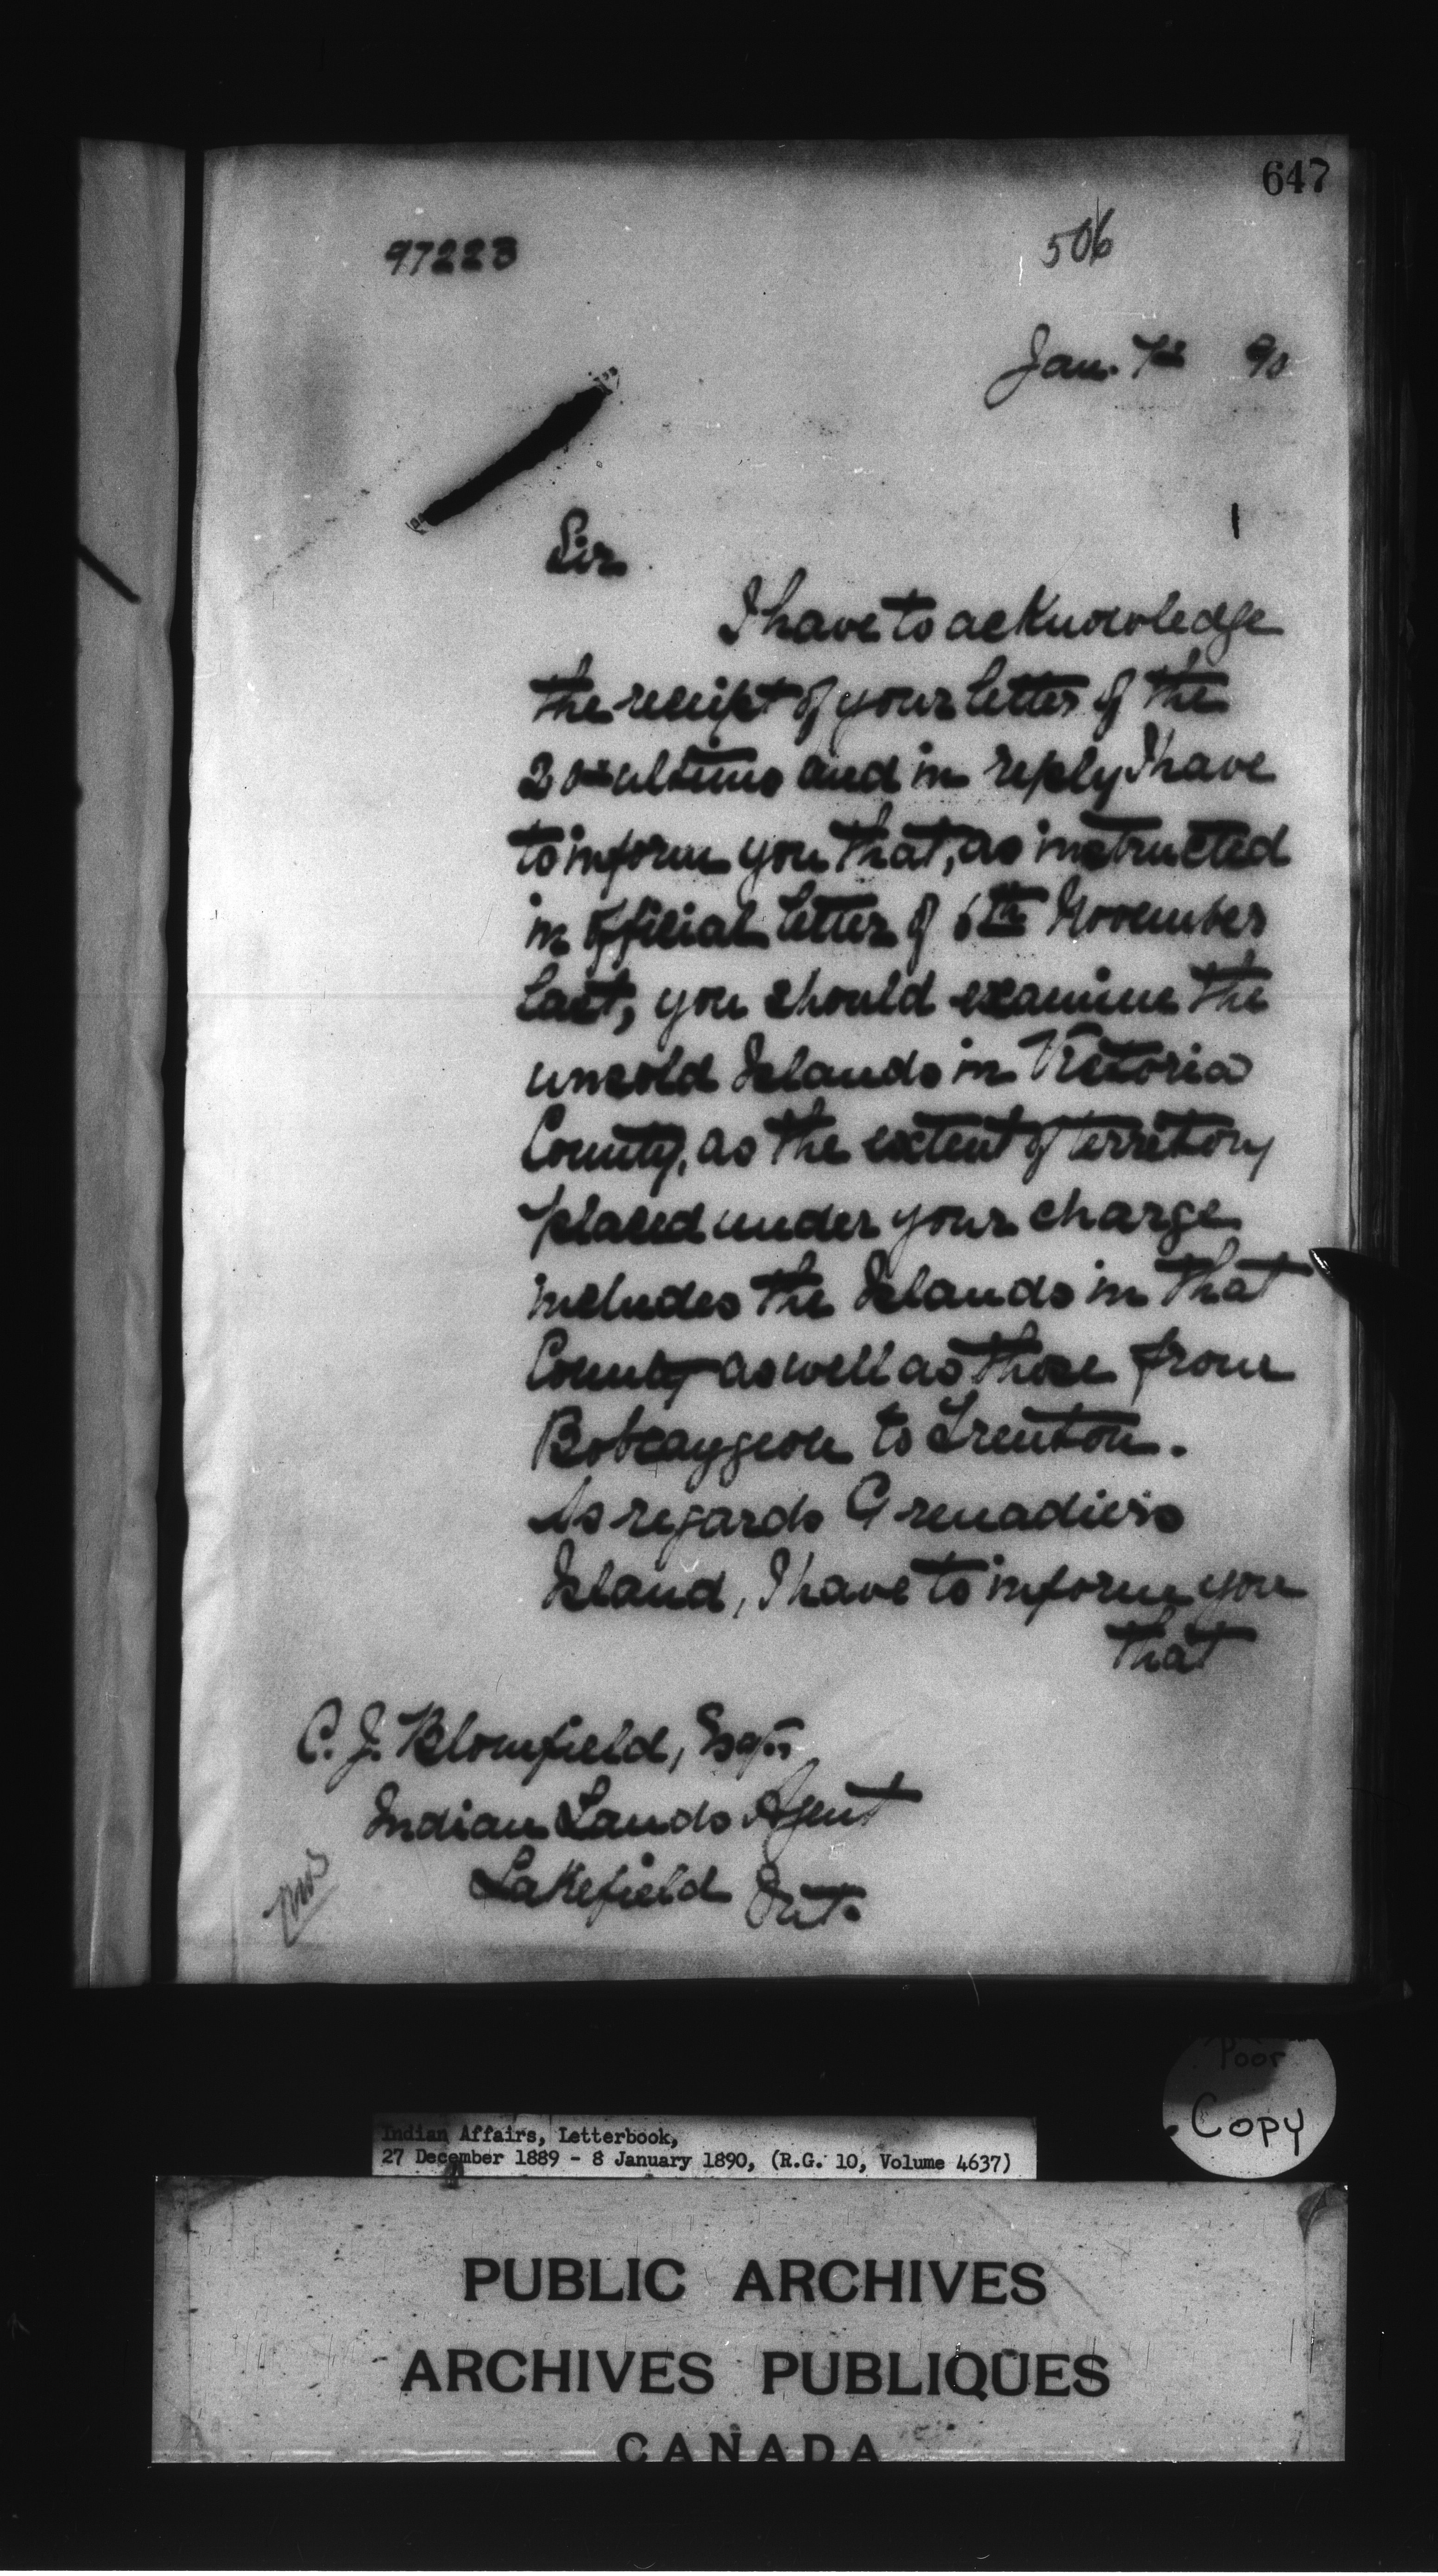 647
97223
506
Jan. 7th 90
Sir
I have to acknowledge
the receipt of your letter of the
20th ultimo and in reply I have
to inform you that, as instructed
in official letter of 6th November
last, you should examine the
unsold Islands in Victoria
County, as the extent of territory
placed under your charge
includes the Islands in that
County as well as those from
Bobcaygeon to Trenton.
As regards Grenadiers
Island, I have to inform you
that
C. J. Blomfield, Esqr.
Indian Lands Agent
Lakefield Ont.
Poor
Copy
Indian Affairs, Letterbook,
27 December 1889 - 8 January 1890, (R.G. 10, Volume 4637)
PUBLIC ARCHIVES
ARCHIVES PUBLIQUES
CANADA